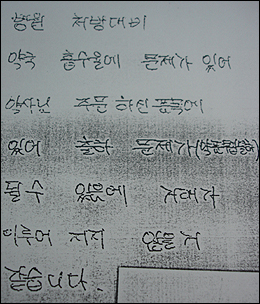 병원 처방대비
약국 흡수율에 문제가 있어
약사님 주문 하신 품목에
있어 출하 문제가
될 수 있음에 거래가
이루어 지지 않을거
같습니다.